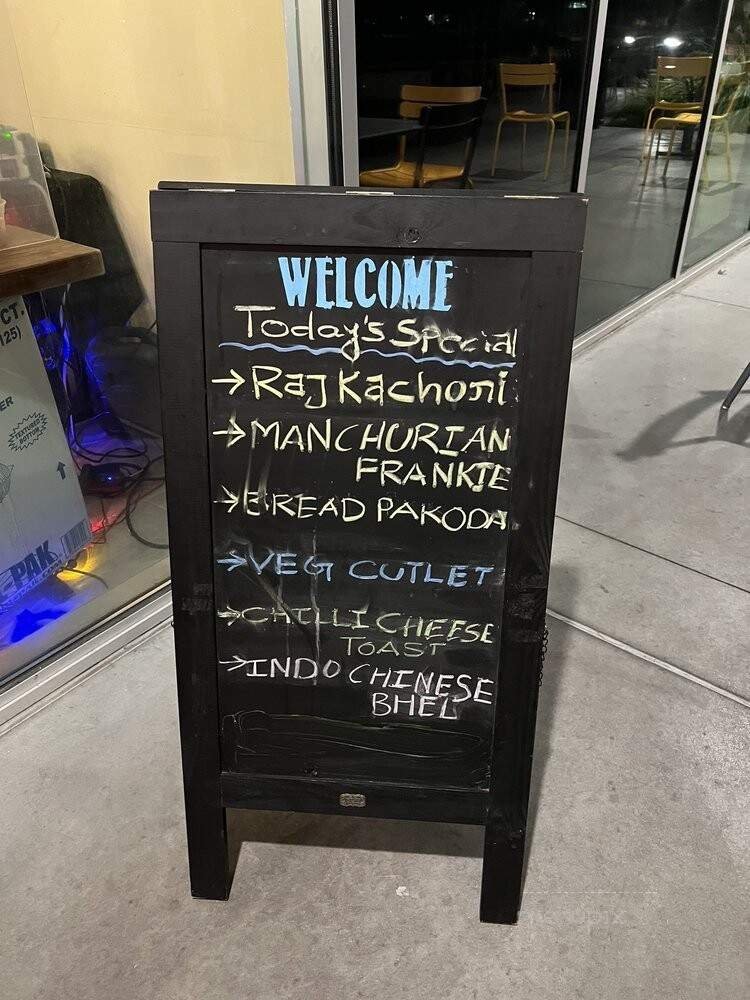 WELCOME
Today's Special
→Raj Kachori
→MANCHURIAN
FRANKIE
→BREAD PAKODA
→VEG CUTLET
→CHILLI CHEESE
TOAST
→INDO CHINESE
BHEL
CT.
125)
ER
TEXTURED
BOTTOM
PAK